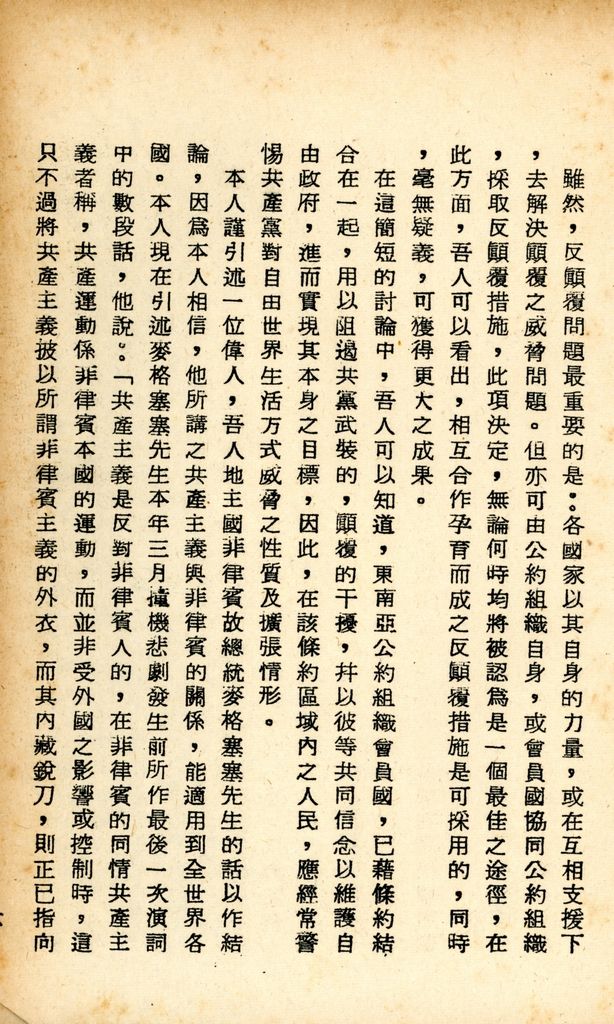 雖然，反顚覆問題最重要的是：各國家以其自身的力量，或在互相支援下
，去解決顚覆之威脅問題。但亦可由公約組織自身，或會員國協同公約組織
，採取反顚覆措施，此項決定，無論何時均將被認爲是一個最佳之途徑，在
此方面，吾人可以看出，相互合作孕育而成之反顚覆措施是可採用的，同時
，毫無疑義，可獲得更大之成果。
在這簡短的討論中，吾人可以知道，東南亞公約組織會員國，已藉條約結
合在一起，用以阻遏共黨武裝的，顚覆的干擾，幷以彼等共同信念以維護自
由政府，進而實現其本身之目標，因此，在該條約區域內之人民，應經常警
惕共產黨對自由世界生活方式威脅之性質及擴張情形。
本人謹引述一位偉人，吾人地主國菲律賓故總統麥格塞塞先生的話以作結
論，因爲本人相信，他所講之共產主義與菲律賓的關係，能適用到全世界各
國。本人現在引述麥格塞塞先生本年三月撞機悲劇發生前所作最後一次演詞
中的數段話，他說：「共產主義是反對菲律賓人的，在菲律賓的同情共產主
義者稱，共產運動係菲律賓本國的運動，而並非受外國之影響或控制時，這
只不過將共產主義披以所謂菲律賓主義的外衣，而其內藏銳刀，則正已指向